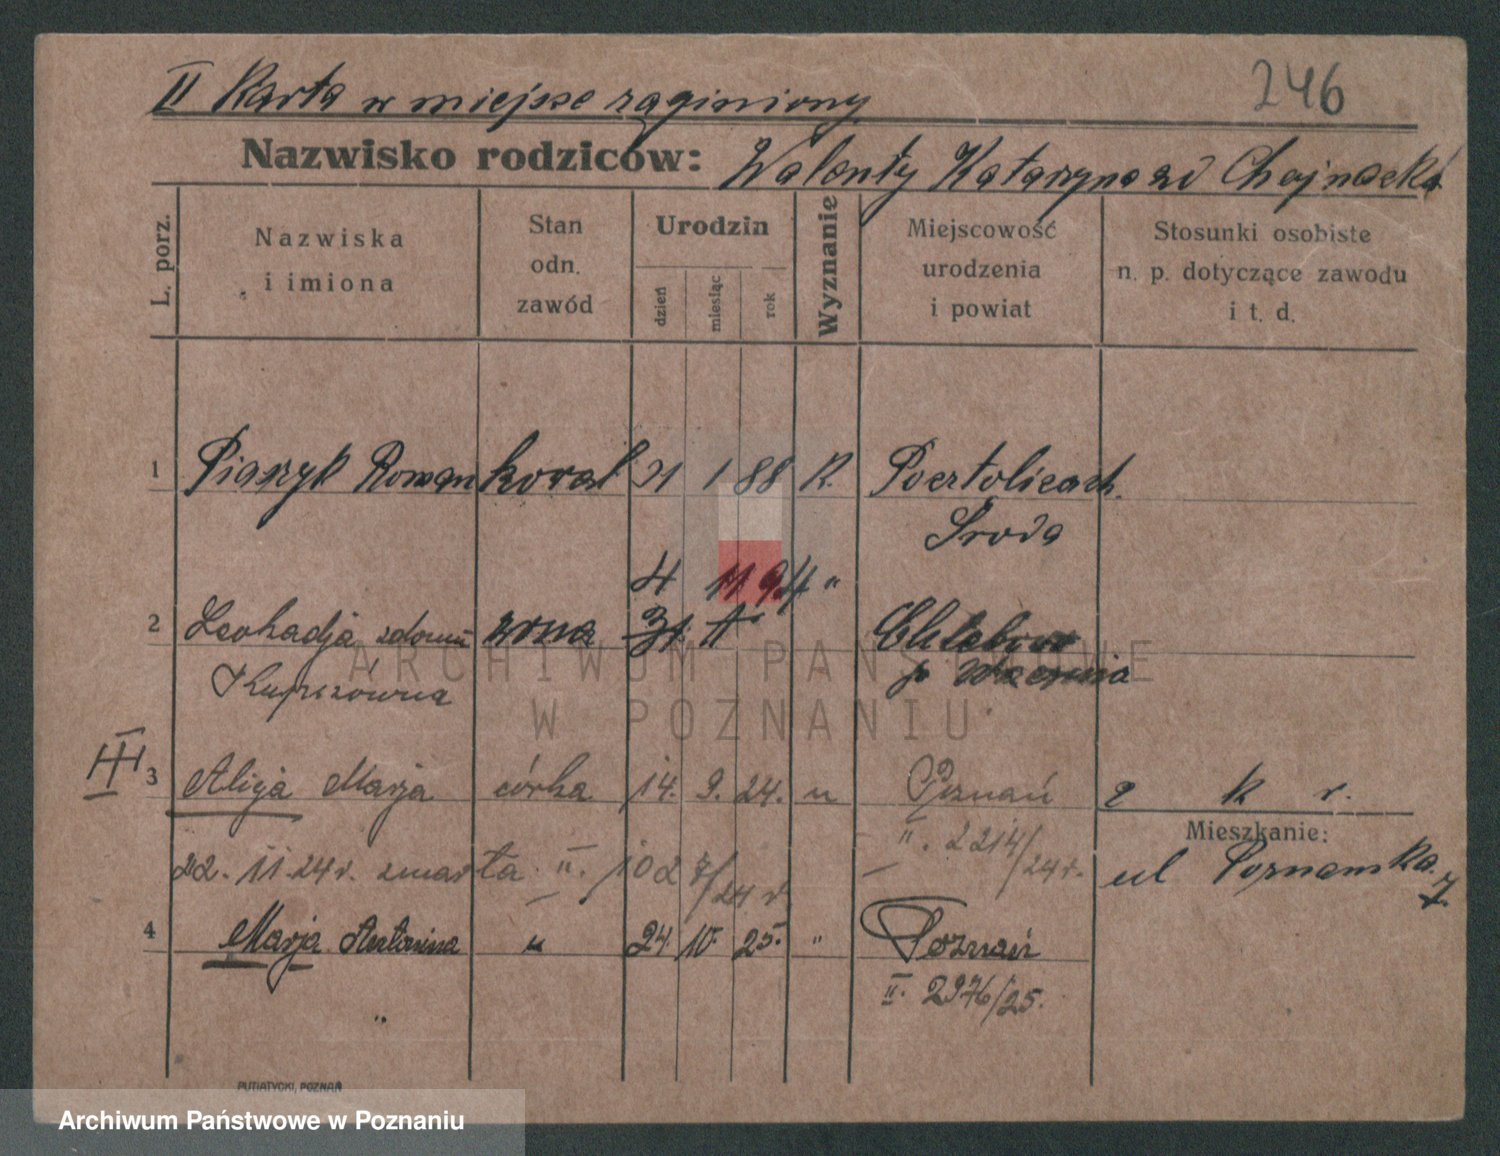 II Karta w miejsce zaginiony
246
Nazwisko rodziców: Walenty Katarzyna zd Chojnacka
L. porz.
Nazwiska i imiona
Stan odn. zawód
Urodzin
dzień
miesiąc
rok
Wyznanie
Miejscowość urodzenia i powiat
Stosunki osobiste n. p. dotyczące zawodu i t. d.
1 Piaszyk Roman kowal 31 1 88 R.
Środa
4 11 94 "
2 Leokadja żona 31.
III
3 Alicja Marja córka 14. 9. 24. " Poznań
II. 2214/24 r.
k r.
Mieszkanie:
ul Poznańska 7.
22. 11. 24 r. zmarła II. 1027/24 r.
4 Marja Antonina " 24. 10. 25. " Poznań
II. 2976/25.
"
PUTIATYCKI, POZNAŃ
ARCHIWUM PAŃSTWOWE
W POZNANIU
Archiwum Państwowe w Poznaniu